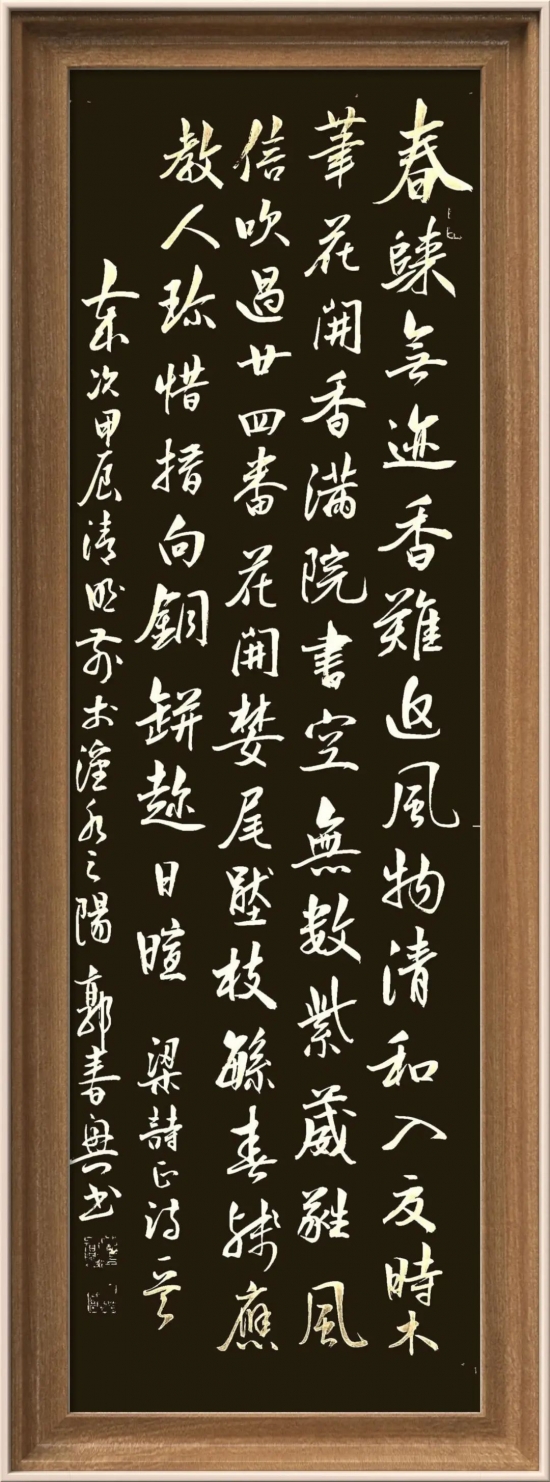 春無迹香難返風物清和入夏時木
筆花開香滿院書空無數紫葳蕤風
信吹過廿四番花開婪尾壓枝繁春殘應
教人珍惜插向銅缾趂日暄 梁詩正詩一首
歲次甲辰清明前於瀍水之陽 郭書興書